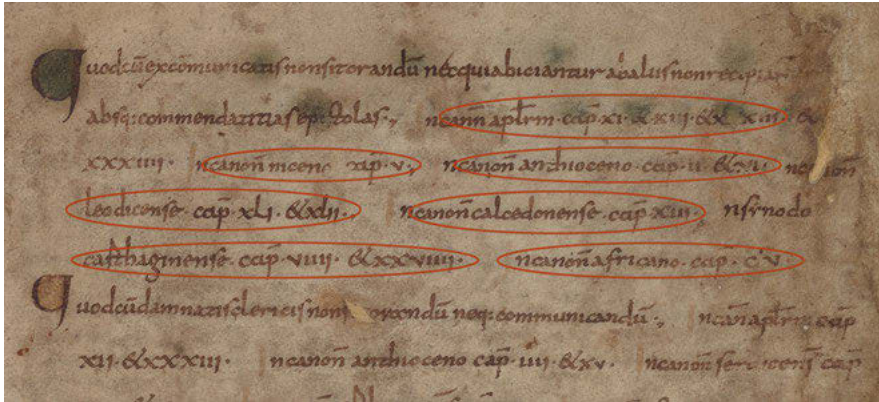 Quod cū excōmunicatis non sit orandū nec qui abiciantur ab aliis non recipiant
absq: commendatitias epistolas., In canoñ aplr̄m cap̄ xi· & xii· & xxxii·
xxxiiii· In canoñ niceno cap̄ v., In canoñ anthioceno cap̄ ii· & vi· In canoñ
leodicense cap̄ xli· & xlii· In canoñ calcedonense cap̄ xiii· In synodo
carthaginense cap̄ viiii· & xxviiii· In canoñ africano· cap̄· cv·
Quod cū damnatis clericis non orandū neq: communicandū., In cañ aplr̄m cap̄
xii· & xxxiii· In canoñ anthioceno cap̄· iiii· & xv· In canoñ cap̄